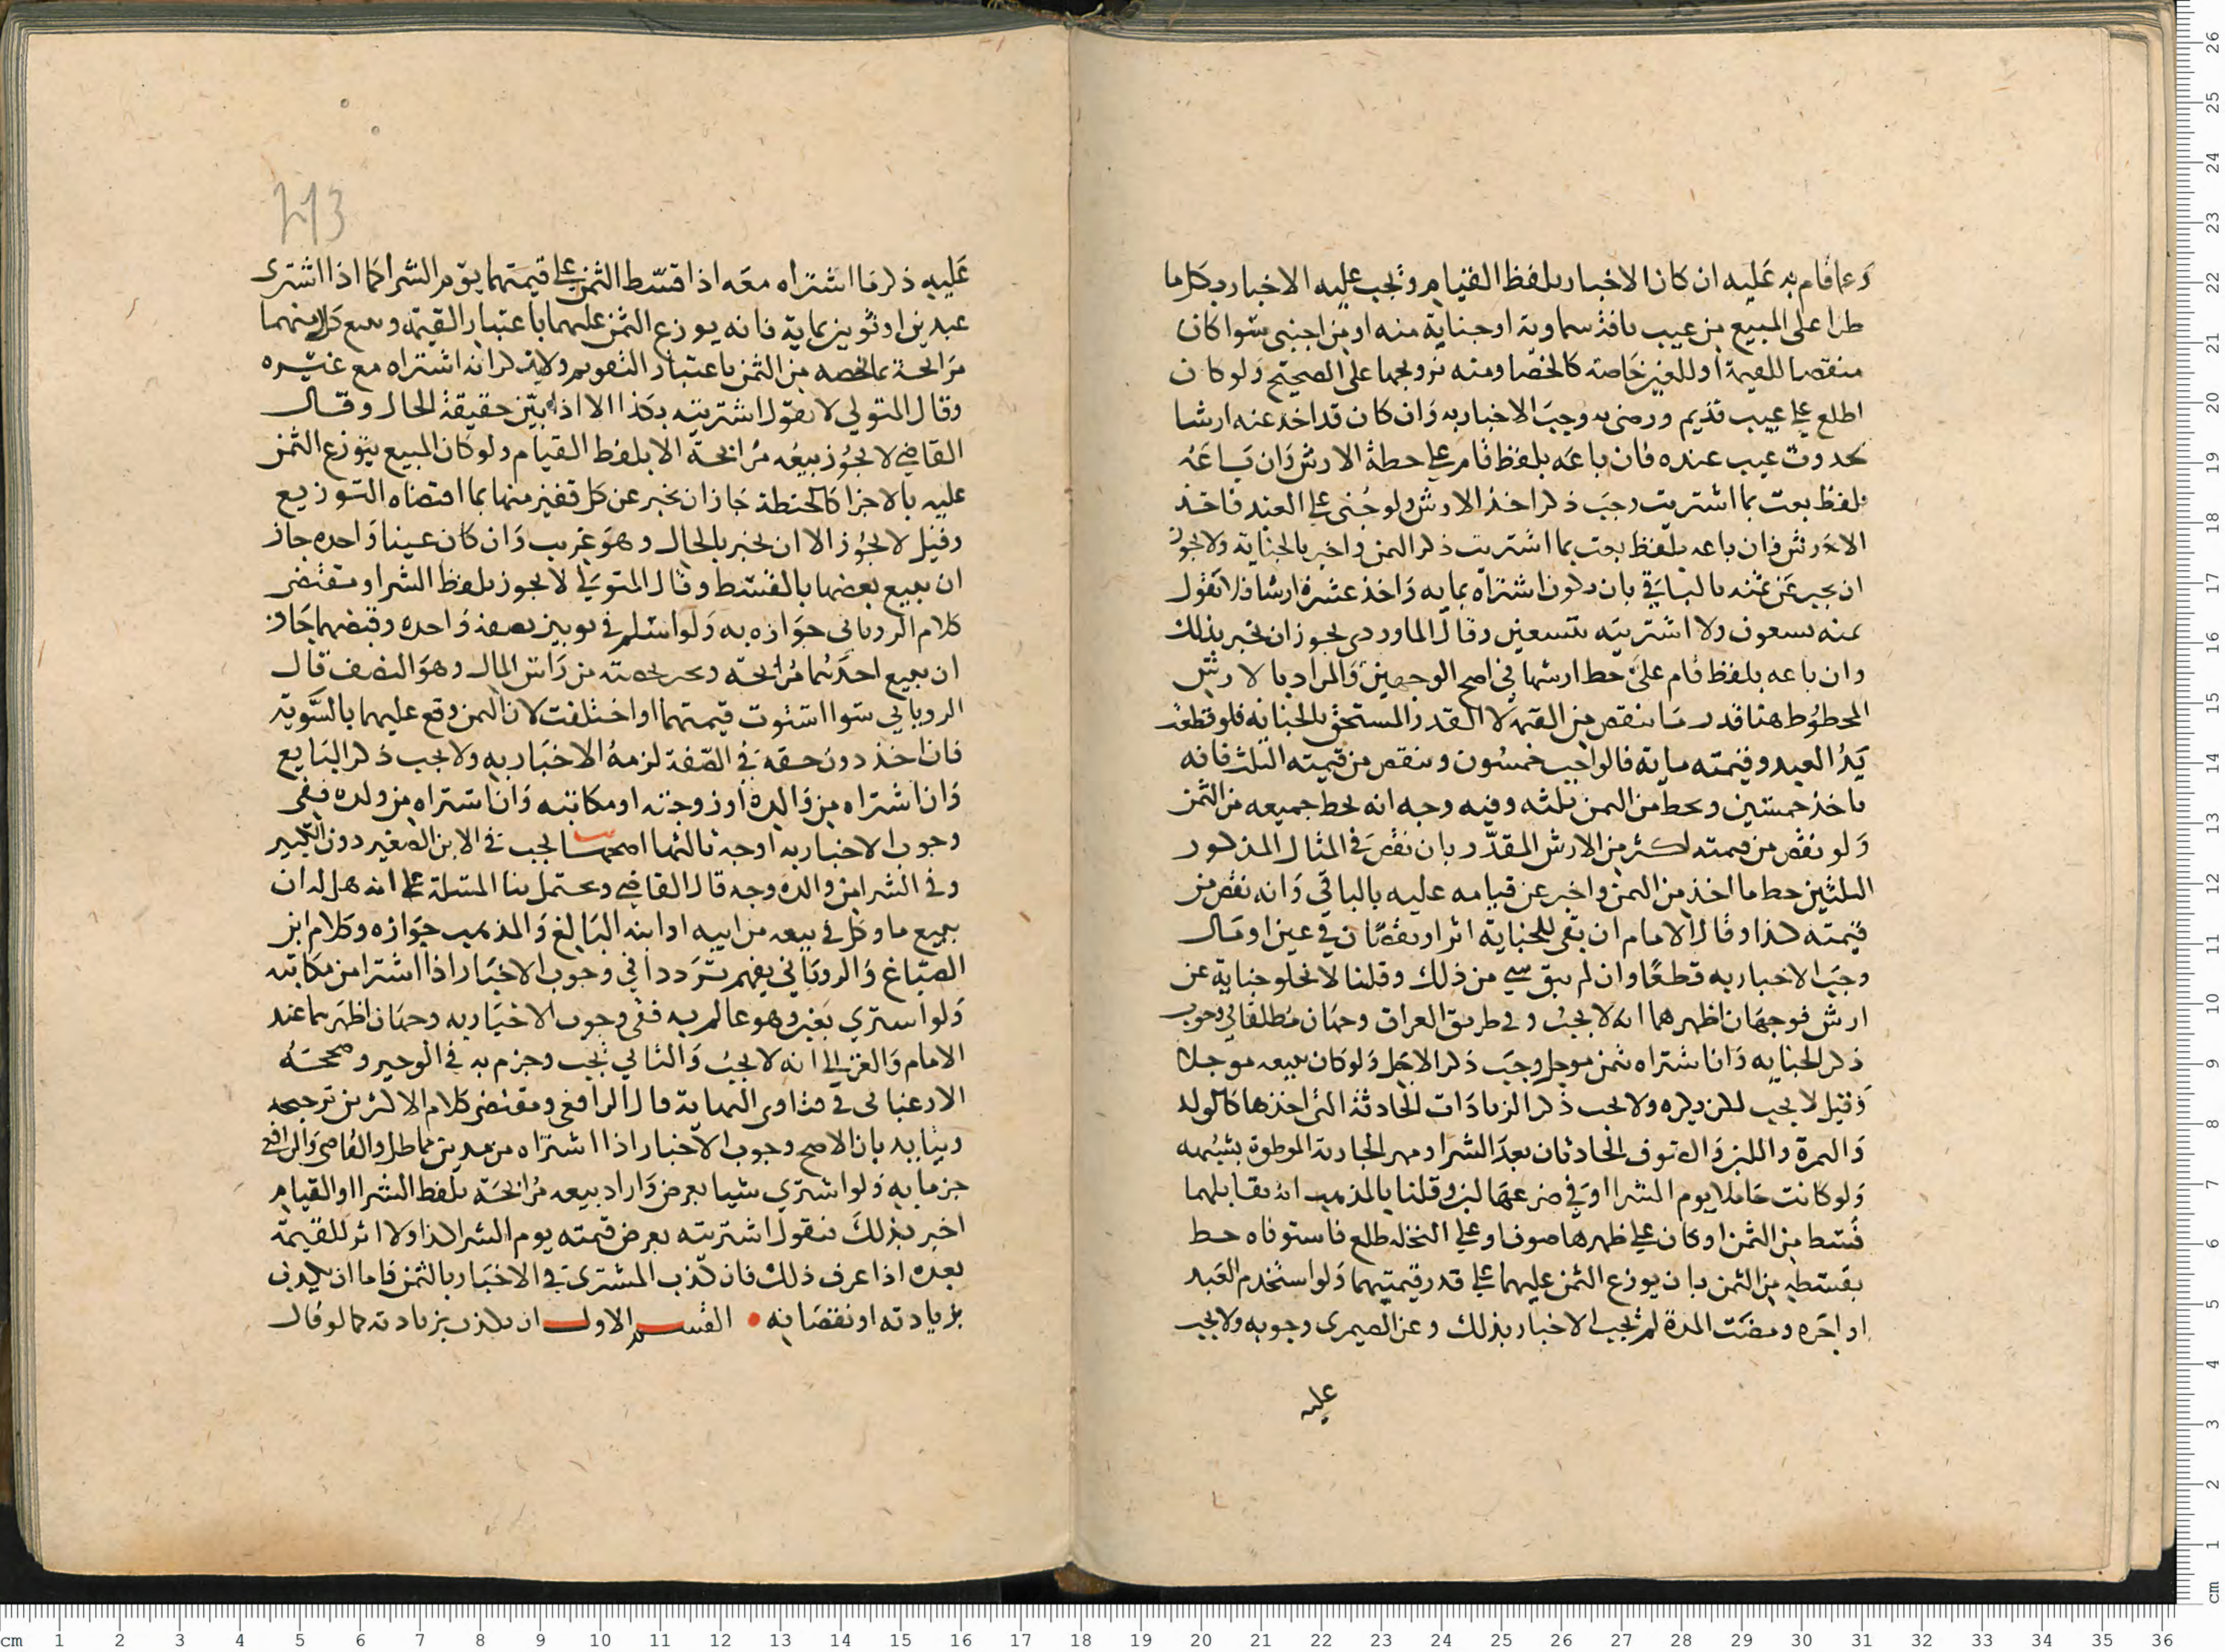 وعما قام به عليه ان كان الاخبار بلفظ القيام وتجب عليه الاخبار بكل ما
طرا على المبيع من عيب بافة سماوية او جناية منه او من اجنبى سوا كان
منقصا للقيمة او للعين خاصة كالخصا ومنه تزويجها على الصحيح ولو كان
اطلع على عيب قديم ورضى به وجب الاخبار به وان كان قد اخذ عنه ارشا
بحدوث عيب عنده فان باعه بلفظ قام على حطة الارش وان باعه
بلفظ بعت بما اشتريت وجب ذكر اخذ الارش ولو جنى على العبد فاخذ
الارش فان باعه بلفظ بعت بما اشتريت ذكر الثمن واخبر بالجناية ولا يجوز
ان يخبر عن ثمنه بالباقي بان يكون اشتراه بمايه واخذ عشرة ارشا فلا تقول
ثمنه تسعون ولا اشتريته بتسعين وقال الماوردي يجوز ان يخبر بذلك
وان باعه بلفظ قام على حط ارشها في اصح الوجهين والمراد بالارش
المحطوط هنا قدر ما ينقص من القيمة لا القدر المستحق بالجناية فلو قطعت
يد العبد وقيمته ماية فالواجب خمسون وينقص من قيمته الثلث فانه
ياخذ خمسين ويحط من الثمن ثلثه وفيه وجه انه يحط جميعه من الثمن
ولو نقص من قيمته اكثر من الارش المقدر بان نقص في المثال المذكور
الثلثين حط ما اخذ من الثمن واخبر عن قيامه عليه بالباقي وانه نقص من
قيمته كذا وقال الامام ان بقي للجناية اثر او نقصان في عين او مال
وجب الاخبار به قطعا وان لم يبق شي من ذلك وقلنا لا تخلو جناية عن
ارش فوجهان اظهرهما انه لا يجب وفي طريق العراق وجهان مطلقا في وجوب
ذكر الجنايه وان اشتراه بثمن موجل وجب ذكر الاجل ولو كان يبيعه موجلا
وقيل لا يجب لكن يكره ولا يجب ذكر الزيادات الحادثة التي اخذها كالولد
والثمرة واللبن والصوف الحادثان بعد الشرا ومهر الجارية الموطوة بشبهه
ولو كانت حاملا يوم الشرا او في ضرعها لبن وقلنا بالمذهب انه يقابلهما
قسط من الثمن او كان على ظهرها صوف او على النخلة طلع فاستوفاه حط
بقسطه من الثمن بان يوزع الثمن عليهما على قدر قيمتيهما ولو استخدم العبد
او اجره ومضت المدة لم يجب الاخبار بذلك وعن الصيمرى وجوبه ولا يجب
عليه
عليه ذكر ما اشتراه معه اذا قسط الثمن على قيمتهما يوم الشرا كما اذا اشترى
عبدين او ثوبين بماية فانه يوزع الثمن عليهما باعتبار القيمة وبيع كل منهما
مرابحة بما يخصه من الثمن باعتبار التقويم ولا يذكر انه اشتراه مع غيره
وقال المتولي لا يقول اشتريته بكذا الا اذا بين حقيقة الحال وقال
القاضي لا يجوز بيعه مرابحة الا بلفظ القيام ولو كان المبيع يتوزع الثمن
عليه بالاجزا كالحنطة جاز ان يخبر عن كل قفيز منها بما اقتضاه التوزيع
وقيل لا يجوز الا ان يخبر بالحال وهو غريب وان كان عينا واحده جاز
ان يبيع بعضها بالقسط وقال المتولي لا يجوز بلفظ الشرا ومقتضى
كلام الروياني جوازه به ولو اسلم في ثوبين بصفة واحده وقبضهما جاز
ان يبيع احدهما مرابحة ويخبر بحصته من راس المال وهو النصف قال
الروياني سوا استوت قيمتهما او اختلفت لان الثمن وقع عليهما بالسوية
فان اخذ دون حقه في الصفة لزمه الاخبار به ولا يجب ذكر البايع
وان اشتراه من والده او زوجته او مكاتبه وان اشتراه من ولده ففى
وجوب الاخبار به اوجه ثالثها اصحها يجب في الابن الصغير دون الكبير
وفي الشرا من والده وجه قال القاضي ويحتمل بنا المسئلة على انه هل له ان
يبيع ما وكل في بيعه من ابيه او ابنه البالغ والمذهب جوازه وكلام ابن
الصباغ والروياني يفهم ترددا في وجوب الاخبار اذا اشترا من مكاتبه
ولو اشتري بغبن وهو عالم به ففى وجوب الاخبار به وجهان اظهرهما عند
الامام والغزالي انه لا يجب والثاني يجب وجزم به في الوجيز وصححه
الارغياني في فتاوى النهاية قال الرافعى ومقتضى كلام الاكثرين ترجيحه
ويتايد بان الاصح وجوب الاخبار اذا اشتراه من مدين مماطل والقاضى والرافعى
جزما به ولو اشترى شيا بعرض واراد بيعه مرابحة بلفظ الشرا او القيام
اخبر بذلك فيقول اشتريته بعرض قيمته يوم الشرا كذا ولا اثر للقيمة
بعده اذا عرف ذلك فان كذب المشترى في الاخبار بالثمن فاما ان يكذب
بزيادته او نقصانه • القسم الاول ان يكذب بزيادته كما لو قال